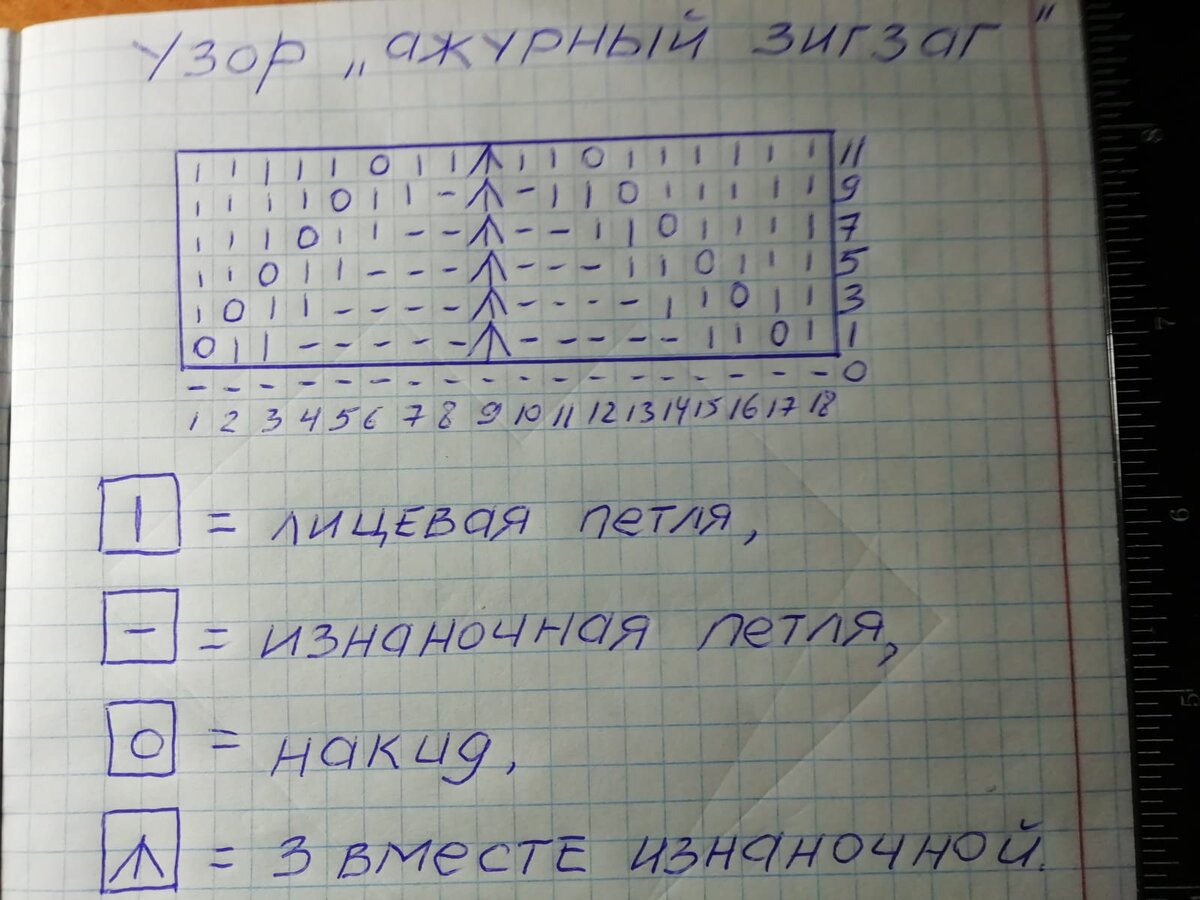 Узор „ажурный зигзаг"
| | | | | O | | ⋀ | | O | | | | | | 11
| | | | O | | - ⋀ - | | O | | | | | 9
| | | O | | - - ⋀ - - | | O | | | | 7
| | O | | - - - ⋀ - - - | | O | | | 5
| O | | - - - - ⋀ - - - - | | O | | 3
O | | - - - - - ⋀ - - - - - | | O | 1
- - - - - - - - - - - - - - - - - - 0
1 2 3 4 5 6 7 8 9 10 11 12 13 14 15 16 17 18
| = лицевая петля,
- = изнаночная петля,
O = накид,
⋀ = 3 вместе изнаночной.
8
7
6
5